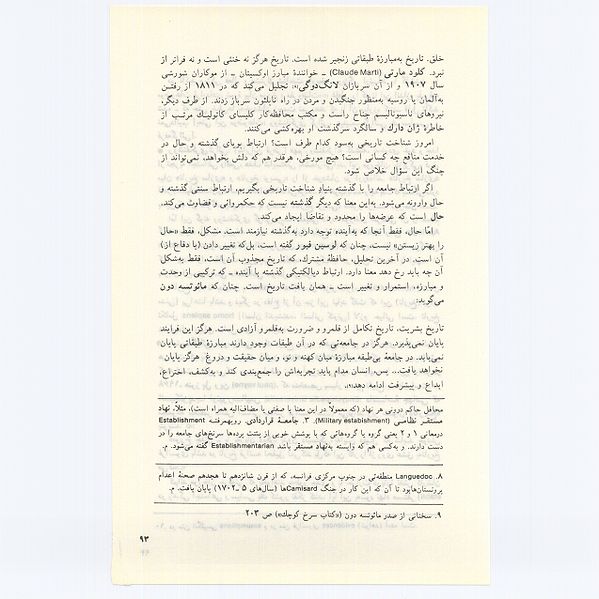 خلق. تاریخ به‌مبارزهٔ طبقاتی زنجیر شده است. تاریخ هرگز نه خنثی است و نه فراتر از
نبرد. کلود مارتی (Claude Marti) ـ خوانندهٔ مبارز اوکسیتان ـ از موکاران شورشی
سال ۱۹۰۷ و از آن سربازان لانگ‌دوگی۸، تجلیل می‌کند که در ۱۸۱۱ از رفتن
به‌آلمان یا روسیه به‌منظور جنگیدن و مردن در راه ناپلئون سرباز زدند. از طرف دیگر،
نیروهای ناسیونالیسم جناح راست و مکتب محافظه‌کار کلیسای کاتولیك مرتب از
خاطرهٔ ژان دارك و سالگرد سرگذشت او بهره‌کشی می‌کنند.
امروز شناخت تاریخی به‌سود کدام طرف است؟ ارتباط پویای گذشته و حال در
خدمت منافع چه کسانی است؟ هیچ مورخی، هرقدر هم که دلش بخواهد، نمی‌تواند از
جنگ این سؤال خلاص شود.
اگر ارتباط جامعه را با گذشته بنیادِ شناخت تاریخی بگیریم، ارتباط سنتی گذشته و
حال وارونه می‌شود. به‌این معنا که دیگر گذشته نیست که حکمروائی و قضاوت می‌کند،
حال است که عرضه‌ها را محدود و تقاضا ایجاد می‌کند.
امّا حال، فقط آنجا که به‌آینده توجه دارد به‌گذشته نیازمند است. مشکل، فقط «حال
را بهتر زیستن» نیست، چنان که لوسین فیور گفته است، بل‌که تغییر دادن (یا دفاع از)
آن است. در آخرین تحلیل، حافظهٔ مشترك، که تاریخ مجذوب آن است، فقط به‌شکل
آن چه باید رخ دهد معنا دارد. ارتباط دیالکتیکی گذشته با آینده ـ که ترکیبی از وحدت
و مبارزه، استمرار و تغییر است ـ همان بافت تاریخ است. چنان که مائوتسه دون
می‌گوید:
تاریخ بشریت، تاریخ تکامل از قلمرو و ضرورت به‌قلمرو آزادی است. هرگز این فرایند
پایان نمی‌پذیرد. هرگز در جامعه‌تی که در آن طبقات وجود دارند مبارزهٔ طبقاتی پایان
نمی‌یابد. در جامعهٔ بی‌طبقه مبارزهٔ میان کهنه و نو، و میان حقیقت و دروغ هرگز پایان
نخواهد یافت... پس، انسان مدام باید تجربه‌اش را جمع‌بندی کند و به‌کشف، اختراع،
ابداع و پیشرفت ادامه دهد۹.
محافل حاکم درونی هر نهاد (که معمولاً در این معنا با صفتی یا مضاف‌الیه همراه است)، مثلاً، نهاد
مستقر نظامی (Military estabishment). ۳. جامعهٔ قراردادی. روبهمرفته Establishment
درمعانی ۱ و ۲ یعنی گروه یا گروه‌هائی که با پوشش خوبی از پشت پرده‌ها سرنخ‌های جامعه را در
دست دارند. و به‌کسی هم که وابسته به‌نهاد مستقر باشد Establishmentarian گفته می‌شود. م.
۸. Languedoc منطقه‌تی در جنوب مرکزی فرانسه، که از قرن شانزدهم تا هجدهم صحنهٔ اعدام
پروتستان‌هابود تا آن که این کار در جنگ Camisardها (سال‌های ۵ ـ ۱۷۰۲) پایان یافت. م.
۹. سخنانی از صدر مائوتسه دون («کتاب سرخ کوچك») ص ۲۰۳
۹۳